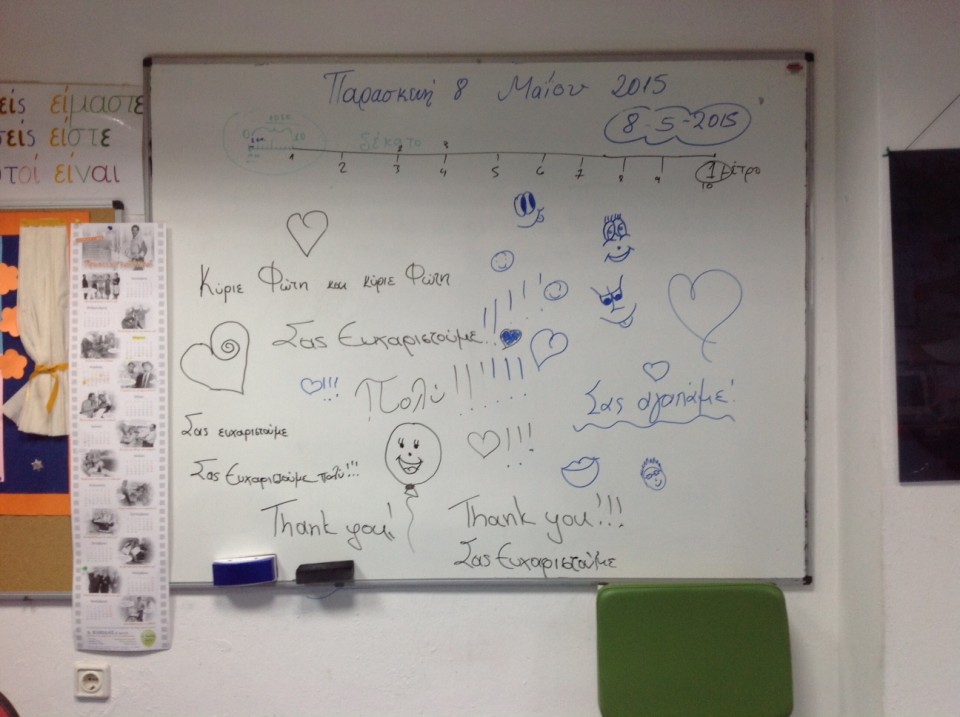 Παρασκευή 8 Μαΐου 2015
8-5-2015
δέκατο
1 2 3 4 5 6 7 8 9 10
1 μέτρο
είς είμαστε
σείς είστε
τοί είναι
Κύριε Φώτη και κύριε Φώτη
Σας Ευχαριστούμε!!!!!!
Πολύ!!!!!!!
Σας αγαπάμε!
!!!
Σας ευχαριστούμε
Σας Ευχαριστούμε πολύ!!!
!!!
Thank you!
Thank you!!!
Σας Ευχαριστούμε